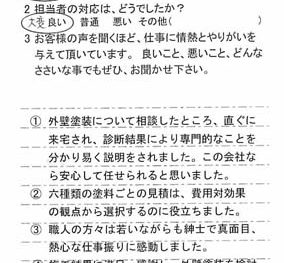 2 担当者の対応は、どうでしたか?
大変良い 普通 悪い その他( )
3 お客様の声を聞くほど、仕事に情熱とやりがいを
与えて頂いています。 良いこと、悪いこと、どんな
ささいな事でもぜひ、お聞かせ下さい。
① 外壁塗装について相談したところ、直ぐに
来宅され、診断結果により専門的なことを
分かり易く説明をされました。この会社な
ら安心して任せられると思いました。
② 六種類の塗料ごとの見積は、費用対効果
の観点から選択するのに役立ちました。
③ 職人の方々は若いながらも紳士で真面目、
熱心な仕事振りに感動しました。